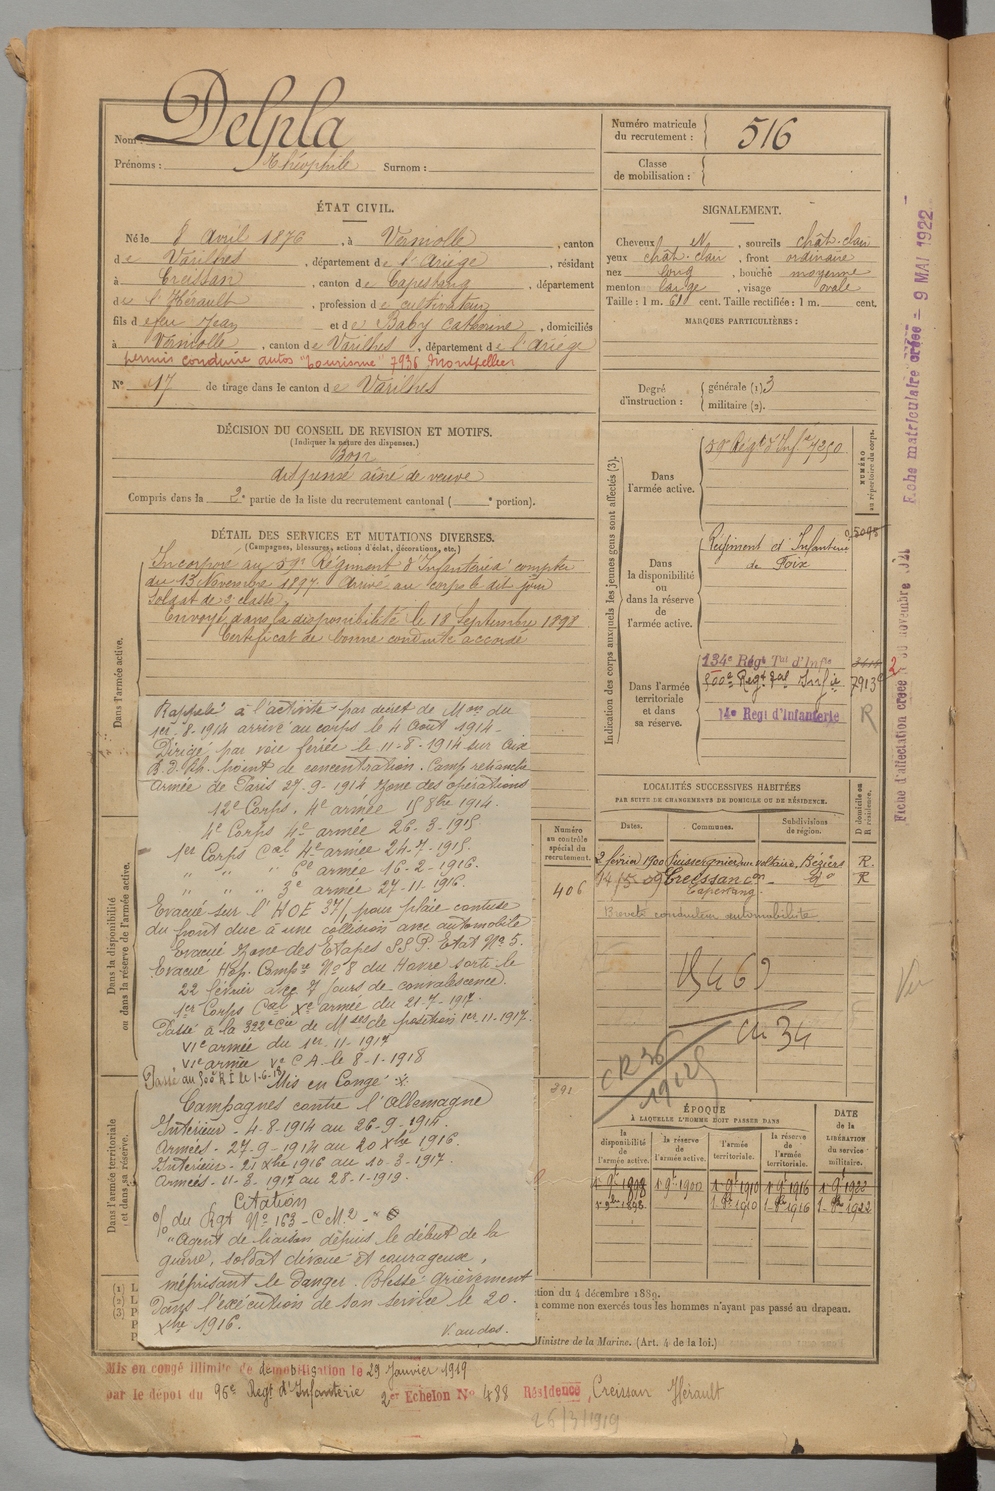 Nom : Delpla
Prénoms : Théophile Surnom :
Numéro matricule du recrutement : 516
Classe de mobilisation :
ÉTAT CIVIL.
Né le 8 Avril 1876, à Verniolle, canton
de Varilhes, département de l'Ariège, résidant
à Creissan, canton de Capestang, département
de l'Hérault, profession de cultivateur
fils de feu Jean et de Baby Catherine, domiciliés
à Verniolle, canton de Varilhes, département de l'Ariège
permis conduire autos "tourisme" 7936 Montpellier
N° 17 de tirage dans le canton de Varilhes
SIGNALEMENT.
Cheveux N, sourcils chât-clair
yeux chât-clair, front ordinaire
nez long, bouche moyenne
menton large, visage ovale
Taille : 1 m. 61 cent. Taille rectifiée : 1 m. cent.
MARQUES PARTICULIÈRES :
Degré d'instruction : générale (1) 3
militaire (2).
DÉCISION DU CONSEIL DE REVISION ET MOTIFS.
(Indiquer la nature des dispenses.)
Bon
dispensé aîné de veuve
Compris dans la 2e partie de la liste du recrutement cantonal ( e portion).
DÉTAIL DES SERVICES ET MUTATIONS DIVERSES.
(Campagnes, blessures, actions d'éclat, décorations, etc.)
Dans l'armée active.
Incorporé au 59e Régiment d'Infanterie à compter
du 13 Novembre 1897. Arrivé au corps le dit jour
Soldat de 2e classe.
Envoyé dans la disponibilité le 18 Septembre 1898
Certificat de bonne conduite accordé
Rappelé à l'activité par décret de Mon du
1er-8-1914 arrivé au corps le 4 Août 1914-
Dirigé par voie ferrée le 11-8-1914 sur Aix
point de concentration. Camp retranché
Armée de Paris 27-9-1914 Zone des opérations
12e Corps. 4e armée 15 8bre 1914.
4e Corps 4e armée 26-3-1915
1er Corps Cal 4e armée 24-7-1915.
" " " 6e armée 16-2-1916.
" " " 3e armée 27-11-1916.
Evacué sur l'HOE 37/1 pour plaie contuse
du front due à une collision avec automobile
Evacué Zone des Etapes SSP. Etat No 5.
Evacué Hop. Compre No 8 du Havre sorti le
22 février avec 7 jours de convalescence.
1er Corps Cal Xe armée du 21-7-1917.
Passé à la 322e Cie de Mses de position 1er-11-1917.
VIe armée du 1er-11-1917
VIe armée Ve C A. le 8-1-1918
Passé au 500e R I le 1-6-18 Mis en Congé
Campagnes contre l'Allemagne
Intérieur - 4-8-1914 au 26-9-1914.
Armées - 27-9-1914 au 20 Xbre 1916.
Intérieur - 21 Xbre 1916 au 10-3-1917.
Armées - 11-3-1917 au 28-1-1919.
Citation
% du Rgt No 163 - C M.2 -
"Agent de liaison depuis le début de la
guerre, soldat dévoué et courageux,
méprisant le danger. Blessé grièvement
dans l'exécution de son service le 20.
Xbre 1916.
V. au dos.
Dans la disponibilité ou dans la réserve de l'armée active.
Dans l'armée territoriale et dans sa réserve.
Indication des corps auxquels les jeunes gens sont affectés (3).
Dans l'armée active.
59e Régt d'Infie 4250
NUMÉRO au répertoire du corps.
Dans la disponibilité ou dans la réserve de l'armée active.
Régiment d'Infanterie
de Foix
Dans l'armée territoriale et dans sa réserve.
134e Régt Tal d'Infie
500e Regt Tal Infie 7913
14e Régt d'Infanterie R
2
LOCALITÉS SUCCESSIVES HABITÉES
PAR SUITE DE CHANGEMENTS DE DOMICILE OU DE RÉSIDENCE.
Dates. Communes. Subdivisions de région. D domicile ou R résidence.
2 février 1900 Puisserguier Béziers R.
Creissan do R
Capestang.
Brevet conducteur automobiliste
Numéro au contrôle spécial du recrutement.
406
391
CR 36
1912
Vu
ÉPOQUE
À LAQUELLE L'HOMME DOIT PASSER DANS
la disponibilité de l'armée active. la réserve de l'armée active. l'armée territoriale. la réserve de l'armée territoriale.
DATE de la LIBÉRATION du service militaire.
1 9bre 1898 1 9bre 1900 1 9bre 1910 1 9bre 1916 1 9bre 1922
1 1910 1 1916 1 1922
(1) L
(2) L
(3) P
ction du 4 décembre 1889.
a comme non exercés tous les hommes n'ayant pas passé au drapeau.
Ministre de la Marine. (Art. 4 de la loi.)
Mis en congé illimité de démobilisation le 29 Janvier 1919
par le dépôt du 96e Régt d'Infanterie 2er Echelon No 488 Résidence, Creissan Hérault
25/3/1919
Fiche matriculaire créée - 9 MAI 1922
Fiche d'affectation créée novembre